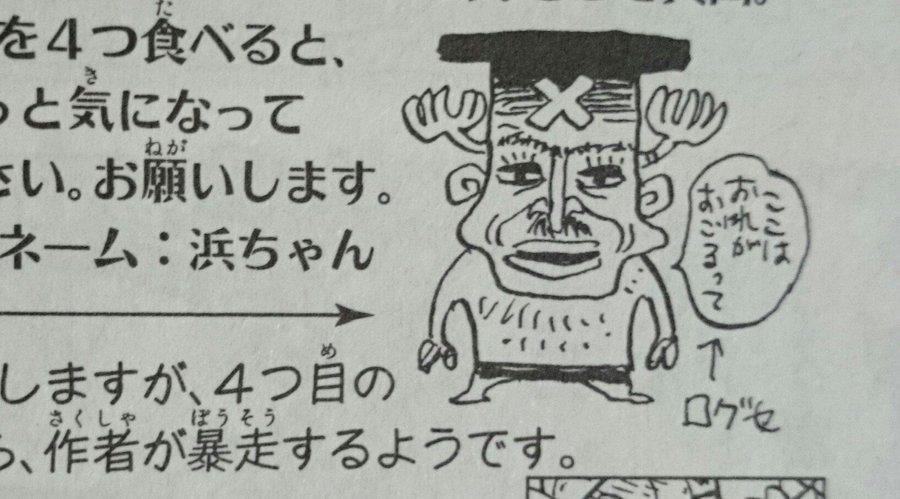 を4つ食べると、
っと気になって
さい。お願いします。
ネーム：浜ちゃん
しますが、4つ目の
ら、作者が暴走するようです。
ここは
おれが
おごるって
ログセ